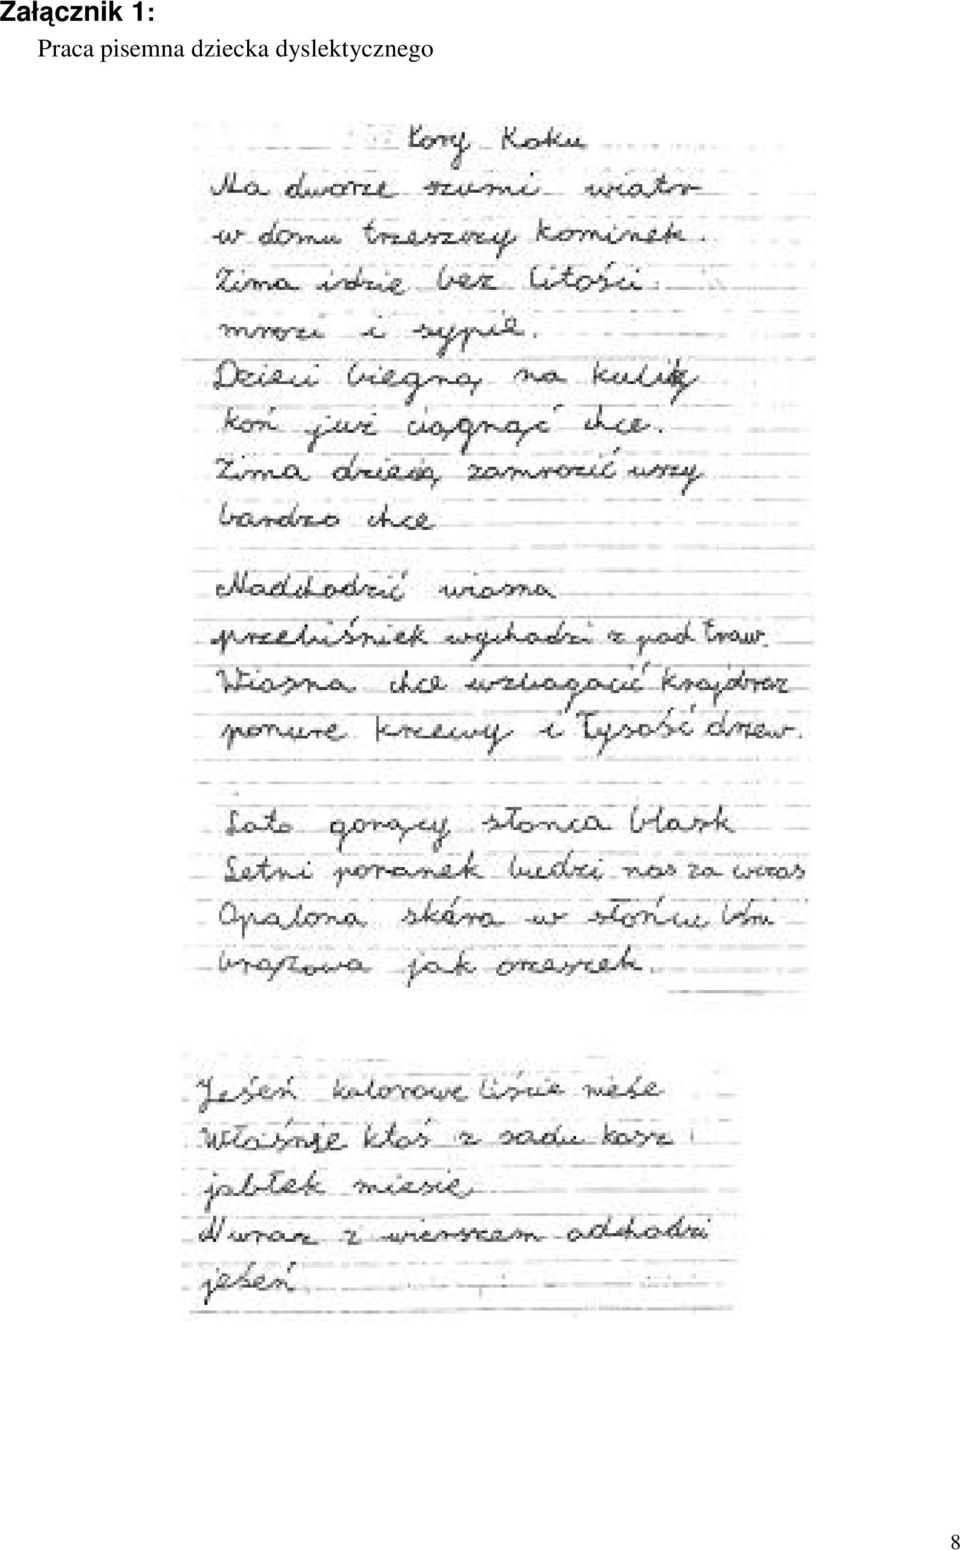 Załącznik 1:
Praca pisemna dziecka dyslektycznego
Łory Koku
Na dworze szumi wiatr
w domu trzeszczy kominek.
Zima idzie bez litości.
mrozi i sypie.
Dzieci biegną na kulik
koń już ciągnąć chce.
Zima dziecią zamrozić uszy
bardzo chce
Nadchodzić wiosna
przebiśniek wychodzi z pod traw.
Wiosna chce wzbagacić krajobraz
ponure krzewy i łysość drzew.
Lato gorący słonca blask
Letni poranek budzi nas za wczas
Opalona skóra w słońcu lśni
brązowa jak orzeszek.
Jeśeń kolorowe liście nieśe
Właśnie ktoś z sadu kosz
jabłek niesie
Nuraz z wierszem odchodzi
jeśeń
8